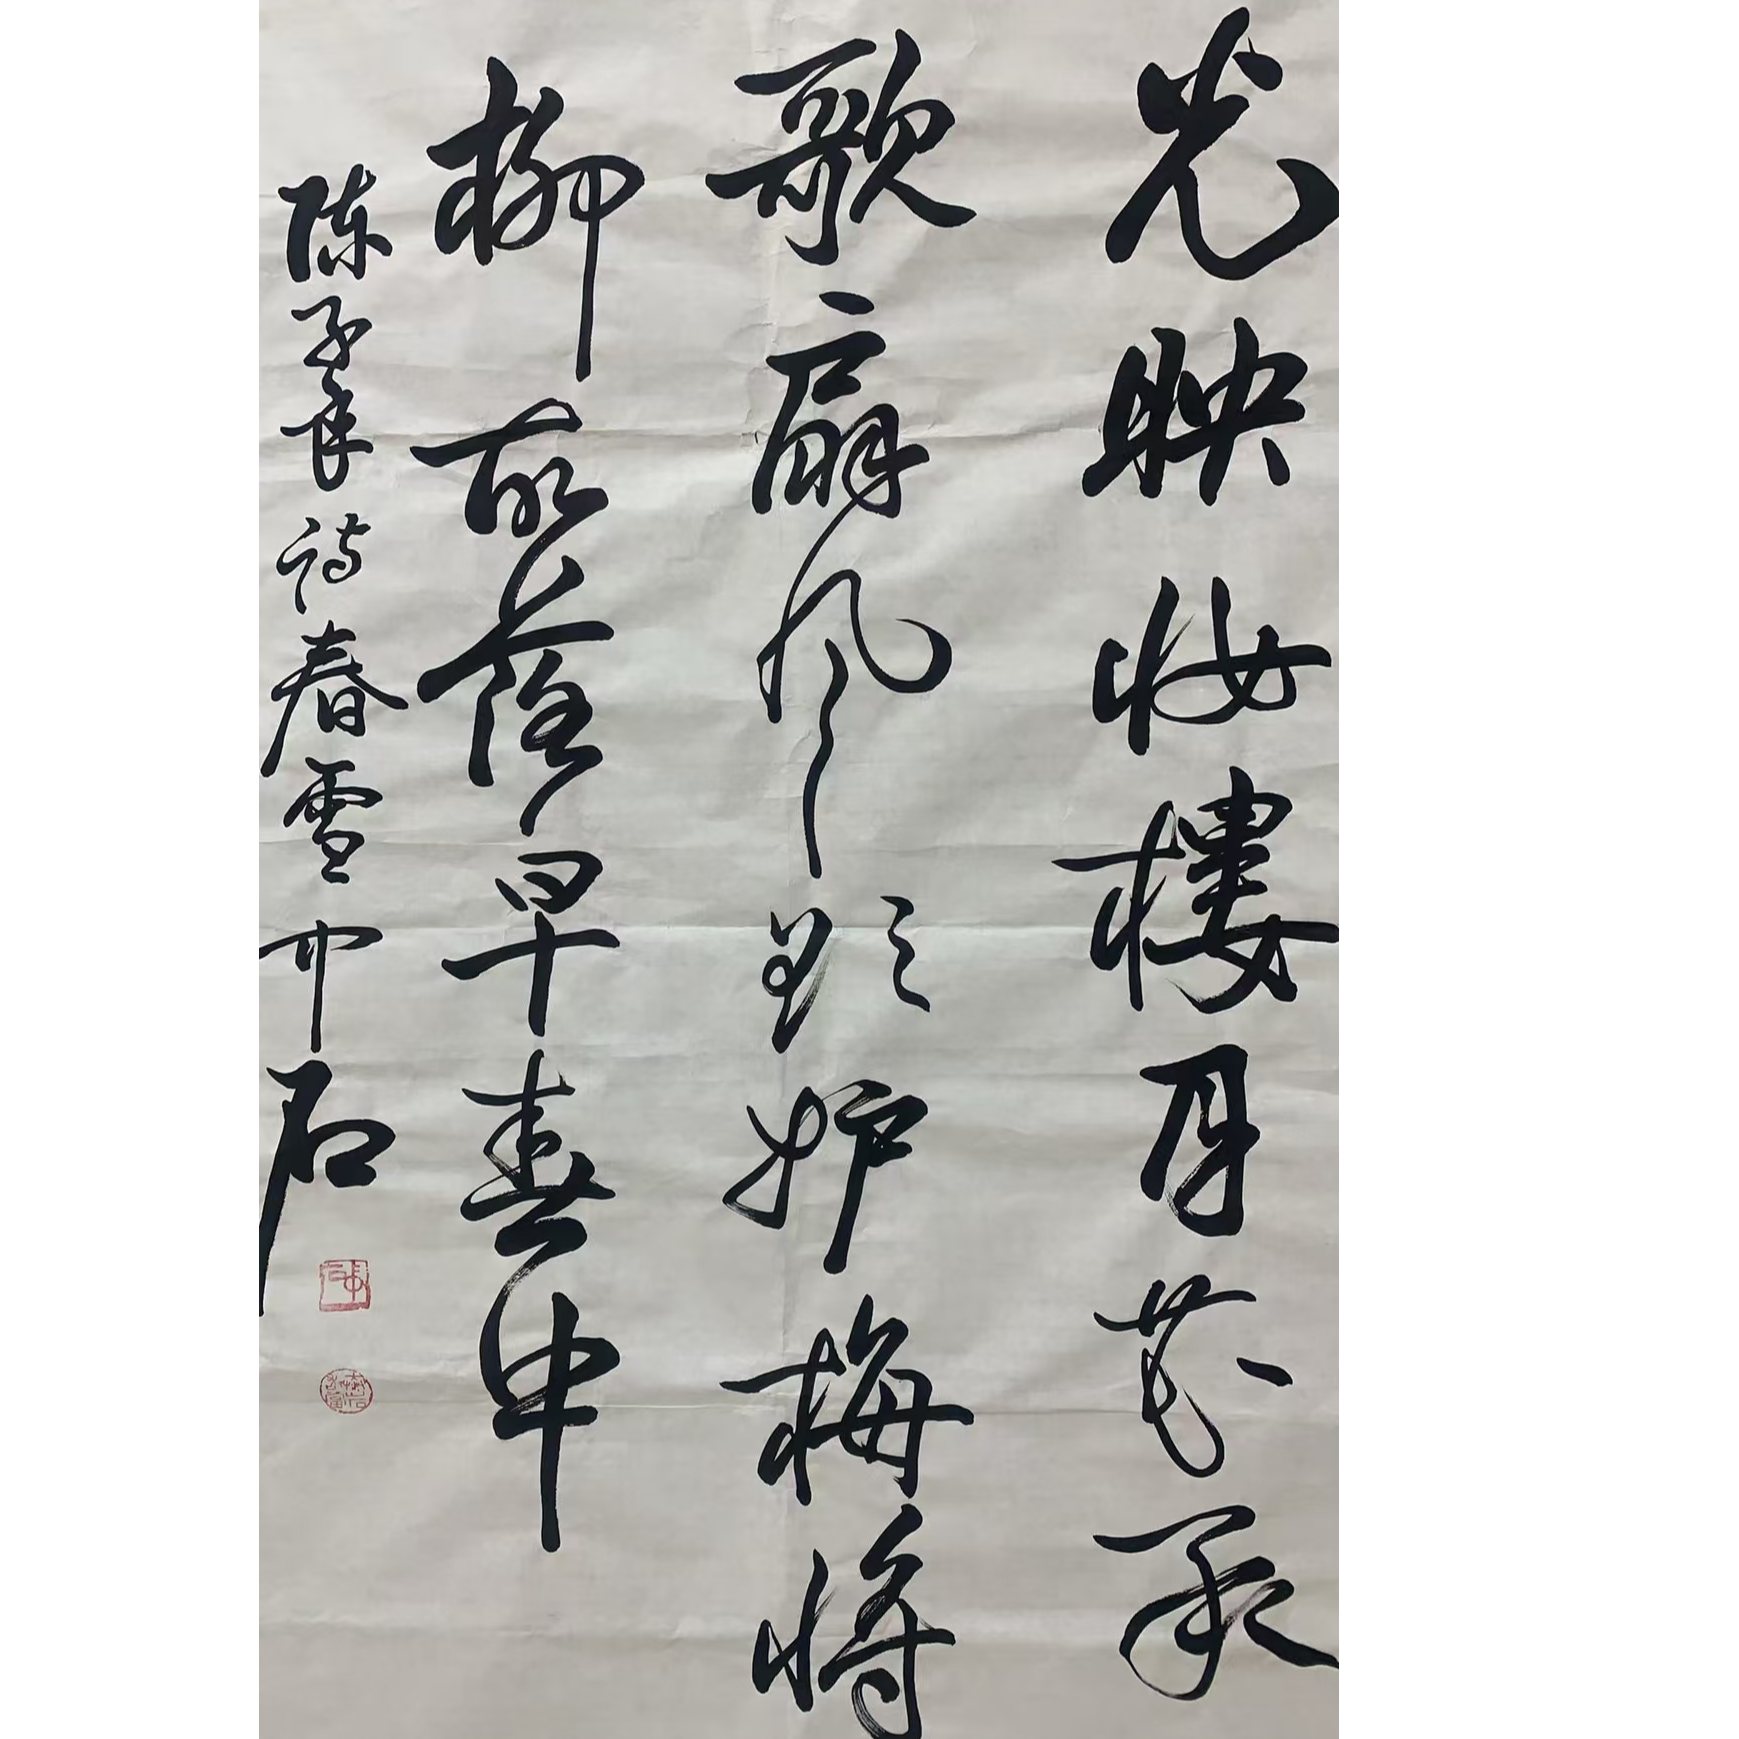 光映妝樓月花承
歌扇风欲妒梅将
柳故落早春中
陈子良诗春雪 中石